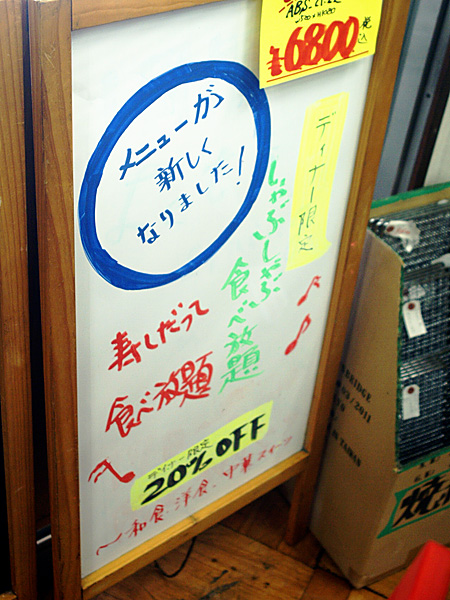 ¥6800
税込
メニューが
新しく
なりました!
ディナー限定
しゃぶしゃぶ
食べ放題
寿しだって
食べ放題
ディナー限定
20% OFF
〜和食、洋食、中華スイーツ
BRIDGE
03/2011